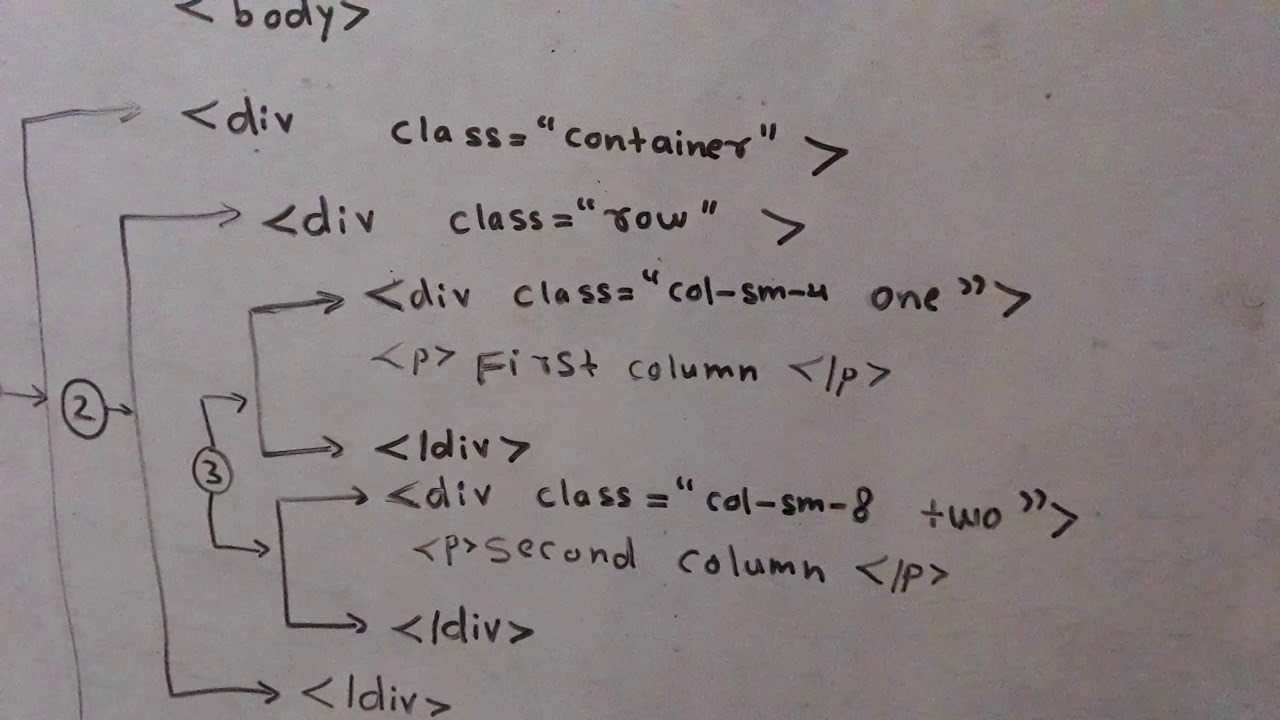 <body>
<div class="container">
<div class="row">
<div class="col-sm-4 one">
<p> First column </p>
</div>
<div class="col-sm-8 two">
<p> second column </p>
</div>
</div>
2
3